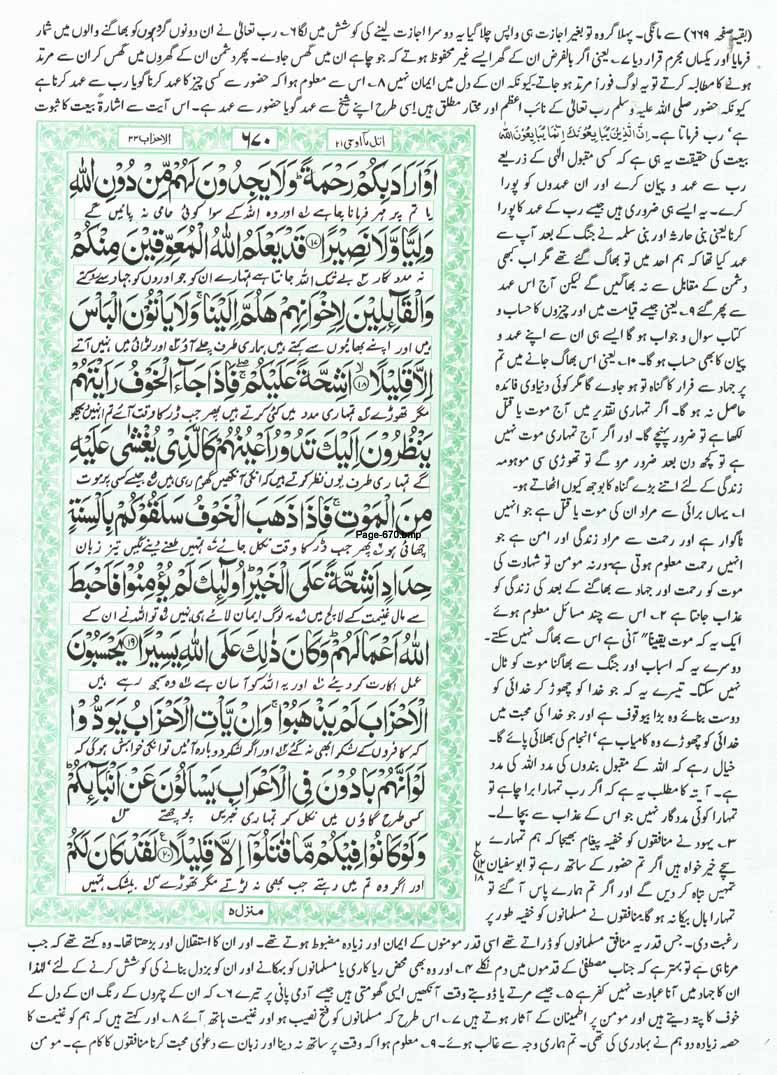 (بقیہ صفحہ ۶۶۹) سے مانگی۔ پہلا گروہ تو بغیر اجازت ہی واپس چلا گیا یہ دوسرا اجازت لینے کی کوشش میں لگا ۶۔ رب تعالیٰ نے ان دونوں گروہوں کو بھاگنے والوں میں شمار
فرمایا اور یکساں مجرم قرار دیا ۷۔ یعنی اگر بالفرض ان کے گھر ایسے غیر محفوظ ہوتے کہ جو چاہے ان میں گھس جاوے۔ پھر دشمن ان کے گھروں میں گھس کر ان سے مرتد
ہونے کا مطالبہ کرتے تو یہ لوگ فوراً مرتد ہو جاتے کیونکہ ان کے دل میں ایمان نہیں ۸۔ اس سے معلوم ہوا کہ حضور سے کسی چیز کا عہد کرنا گویا رب سے عہد کرنا ہے
کیونکہ حضور صلی اللہ علیہ وسلم رب تعالیٰ کے نائب اعظم اور مختار مطلق ہیں اسی طرح اپنے شیخ سے عہد گویا حضور سے عہد ہے۔ اس آیت سے اشارۃً بیعت کا ثبوت
ہے' رب فرماتا ہے۔ اِنَّ الَّذِيْنَ يُبَايِعُوْنَكَ اِنَّمَا يُبَايِعُوْنَ اللّٰهَ
بیعت کی حقیقت یہ ہی ہے کہ کسی مقبول الٰہی کے ذریعے
رب سے عہد و پیمان کرے اور ان عہدوں کو پورا
کرے۔ یہ ایسے ہی ضروری ہیں جیسے رب کے عہد کا پورا
کرنا یعنی بنی حارث اور بنی سلمہ نے جنگ کے بعد آپ سے
عہد کیا تھا کہ ہم احد میں تو بھاگ گئے تھے مگر اب کبھی
دشمن کے مقابل سے نہ بھاگیں گے لیکن آج اس عہد
سے پھر گئے ۹۔ یعنی جیسے قیامت میں اور چیزوں کا حساب و
کتاب سوال و جواب ہو گا ایسے ہی ان سے اپنے عہد و
پیمان کا بھی حساب ہو گا۔ ۱۰۔ یعنی اس بھاگ جانے میں تم
پر جہاد سے فرار کا گناہ تو ہو جاوے گا مگر کوئی دنیاوی فائدہ
حاصل نہ ہو گا۔ اگر تمہاری تقدیر میں آج موت یا قتل
لکھا ہے تو ضرور پہنچے گا۔ اور اگر آج تمہاری موت نہیں
ہے تو کچھ دن بعد ضرور مرو گے تو تھوڑی سی موہومہ
زندگی کے لئے اتنے بڑے گناہ کا بوجھ کیوں اٹھاتے ہو۔
۱۔ یہاں برائی سے مراد ان کی موت یا قتل ہے جو انہیں
ناگوار ہے اور رحمت سے مراد زندگی اور امن ہے جو
انہیں رحمت معلوم ہوتی ہے ورنہ مومن تو شہادت کی
موت کو رحمت اور جہاد سے بھاگنے کے بعد کی زندگی کو
عذاب جانتا ہے ۲۔ اس سے چند مسائل معلوم ہوئے
ایک یہ کہ موت یقیناً آنی ہے اس سے بھاگ نہیں سکتے۔
دوسرے یہ کہ اسباب اور جنگ سے بھاگنا موت کو ٹال
نہیں سکتا۔ تیسرے یہ کہ جو خدا کو چھوڑ کر خدائی کو
دوست بنائے وہ بڑا بیوقوف ہے اور جو خدا کی محبت میں
خدائی کو چھوڑے وہ کامیاب ہے' انجام کی بھلائی پائے گا۔
خیال رہے کہ اللہ کے مقبول بندوں کی مدد اللہ کی مدد
ہے۔ آیتہ کا مطلب یہ ہے کہ اگر رب تمہارا برا چاہے تو
تمہارا کوئی مددگار نہیں جو اس کے عذاب سے بچا لے۔
۳۔ یہود نے منافقوں کو خفیہ پیغام بھیجا کہ ہم تمہارے
سچے خیر خواہ ہیں اگر تم حضور کے ساتھ رہے تو ابوسفیان
تمہیں تباہ کر دیں گے اور اگر تم ہمارے پاس آ گئے تو
تمہارا بال بیکا نہ ہو گا منافقوں نے مسلمانوں کو خفیہ طور پر
الاحزاب ۳۳
۶۷۰
اتل ما اوحی ۲۱
اَوْ اَرَادَ بِكُمْ رَحْمَةً ۭ وَلَا يَجِدُوْنَ لَهُمْ مِّنْ دُوْنِ اللّٰهِ
یا تم پر مہر فرمانا چاہے ۱ اور وہ اللہ کے سوا کوئی حامی نہ پائیں گے
وَلِيًّا وَّلَا نَصِيْرًا ۝۱۷ قَدْ يَعْلَمُ اللّٰهُ الْمُعَوِّقِيْنَ مِنْكُمْ
نہ مددگار ۲ بے شک اللہ جانتا ہے تمہارے ان کو جو اوروں کو جہاد سے روکتے
وَالْقَاۗىِٕلِيْنَ لِاِخْوَانِهِمْ هَلُمَّ اِلَيْنَا ۚ وَلَا يَاْتُوْنَ الْبَاْسَ
ہیں اور اپنے بھائیوں سے کہتے ہیں ہماری طرف چلے آؤ ۳ اور لڑائی میں نہیں آتے
اِلَّا قَلِيْلًا ۝۱۸ اَشِحَّةً عَلَيْكُمْ ښ فَاِذَا جَاۗءَ الْخَوْفُ رَاَيْتَهُمْ
مگر تھوڑے ۴ تمہاری مدد میں گئی کرتے ہیں پھر جب ڈر کا وقت آئے تم انہیں دیکھو
يَنْظُرُوْنَ اِلَيْكَ تَدُوْرُ اَعْيُنُهُمْ كَالَّذِيْ يُغْشٰى عَلَيْهِ
گے تمہاری طرف یوں نظر کرتے ہیں کہ انکی آنکھیں گھوم رہی ہیں ۵ جیسے کسی پر موت
مِنَ الْمَوْتِ ۚ فَاِذَا ذَهَبَ الْخَوْفُ سَلَقُوْكُمْ بِاَلْسِنَةٍ
Page-670.bmp
چھائی ہو ۶ پھر جب ڈر کا وقت نکل جائے ۷ تمہیں طعنے دینے لگیں تیز زبان
حِدَادٍ اَشِحَّةً عَلَي الْخَيْرِ ۭ اُولٰۗىِٕكَ لَمْ يُؤْمِنُوْا فَاَحْبَطَ
سے مال غنیمت کے لالچ میں ۸ یہ لوگ ایمان لائے ہی نہیں ۹ تو اللہ نے ان کے
اللّٰهُ اَعْمَالَهُمْ ۭ وَكَانَ ذٰلِكَ عَلَي اللّٰهِ يَسِيْرًا ۝۱۹ يَحْسَبُوْنَ
عمل اکارت کر دیئے اور یہ اللہ کو آسان ہے وہ سمجھ رہے ہیں
الْاَحْزَابَ لَمْ يَذْهَبُوْا ۚ وَاِنْ يَّاْتِ الْاَحْزَابُ يَوَدُّوْا
کہ کافروں کے لشکر ابھی نہ گئے اور اگر لشکر دوبارہ آئیں تو انکی خواہش ہو گی کہ
لَوْ اَنَّهُمْ بَادُوْنَ فِي الْاَعْرَابِ يَسْاَلُوْنَ عَنْ اَنْۢبَاۗىِٕكُمْ ۭ
کسی طرح گاؤں میں نکل کر تمہاری خبریں پوچھتے
وَلَوْ كَانُوْا فِيْكُمْ مَّا قٰتَلُوْٓا اِلَّا قَلِيْلًا ۝۲۰ لَقَدْ كَانَ لَكُمْ
اور اگر وہ تم میں رہتے جب بھی نہ لڑتے مگر تھوڑے بیشک تمہیں
منزل ۵
رغبت دی۔ جس قدر یہ منافق مسلمانوں کو ڈراتے تھے اسی قدر مومنوں کے ایمان اور زیادہ مضبوط ہوتے تھے۔ اور ان کا استقلال اور بڑھتا تھا۔ وہ کہتے تھے کہ جب
مرنا ہی ہے تو بہتر ہے کہ جناب مصطفیٰ کے قدموں میں دم نکلے ۴۔ اور وہ بھی محض ریاکاری یا مسلمانوں کو بہکانے اور ان کو بزدل بنانے کی کوشش کرنے کے لئے' لہٰذا
ان کا جہاد میں آنا عبادت نہیں کفر ہے ۵۔ جیسے مرتے یا ڈوبتے وقت آنکھیں ایسی گھومتی ہیں جیسے آدمی پانی پر تیرے ۶۔ کہ ان کے چہروں کے رنگ ان کے دل کے
خوف کا پتہ دیتے ہیں اور مومن پر اطمینان کے آثار ہوتے ہیں ۷۔ اس طرح کہ مسلمانوں کو فتح نصیب ہو اور غنیمت ہاتھ آئے ۸۔ اور کہتے ہیں کہ ہم کو غنیمت کا
حصہ زیادہ دو ہم نے بہادری کی تھی۔ تم ہماری وجہ سے غالب ہوئے۔ ۹۔ معلوم ہوا کہ وقت پر ساتھ نہ دینا اور زبان سے دعوٰی محبت کرنا منافقوں کا کام ہے۔ مومن